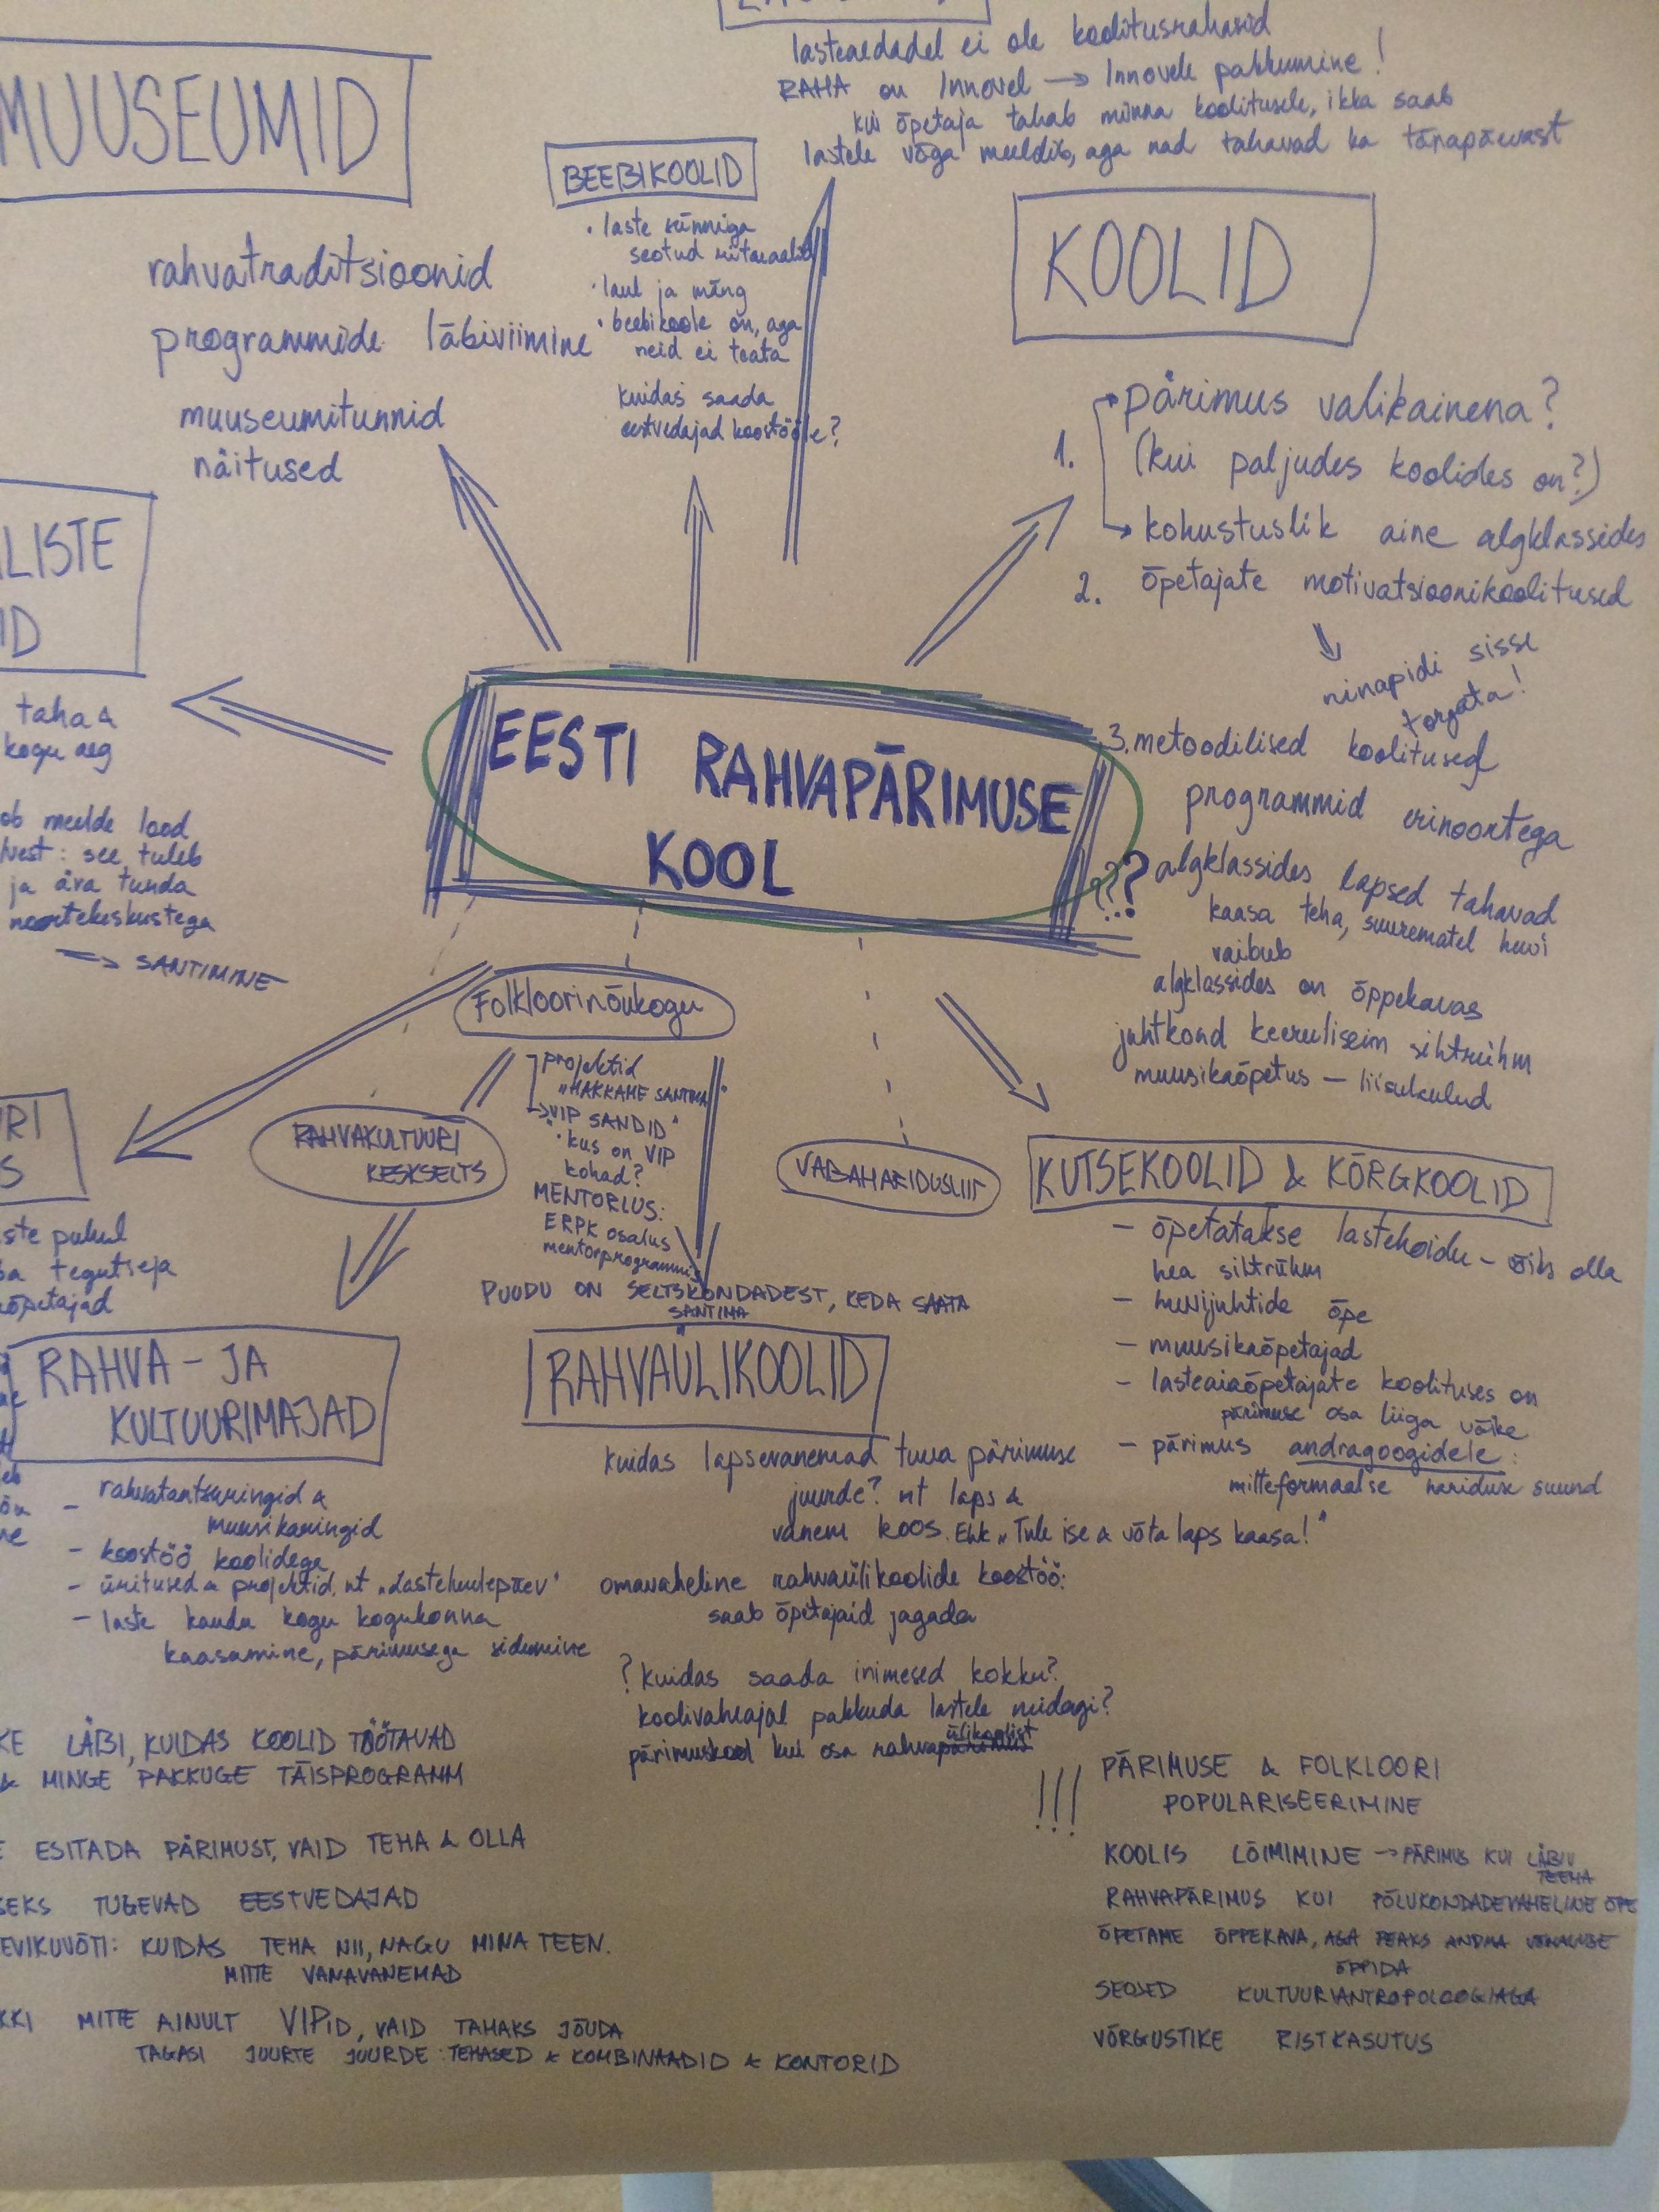 lasteaedadel ei ole koolitusrahasid
RAHA on Innovel → Innovele pakkumine!
kui õpetaja tahab minna koolitusele, ikka saab
lastele väga meeldib, aga nad tahavad ka tänapäevast
MUUSEUMID
rahvatraditsioonid
programmide läbiviimine
muuseumitunnid
näitused
BEEBIKOOLID
• laste sünniga
seotud rituaalid
• laul ja mäng
• beebikoole on, aga
neid ei teata
kuidas saada
eestvedajad koostööle?
KOOLID
1. → pärimus valikainena?
(kui paljudes koolides on?)
→ kohustuslik aine algklassides
2. õpetajate motivatsioonikoolitused
ninapidi sisse
torgata!
3. metoodilised koolitused
programmid erinoortega
??? algklassides lapsed tahavad
kaasa teha, suurematel huvi
vaibub
algklassides on õppekavas
juhtkond keerulisem sihtrühm
muusikaõpetus – liisulaulud
LISTE
ID
taha &
kogu aeg
ob meelde lood
vest: see tuleb
ja ära tunda
noortekeskustega
→ SANTIMINE
EESTI RAHVAPÄRIMUSE
KOOL
Folkloorinõukogu
projektid
"HAKKAME SANTIMA"
→ "VIP SANDID"
• kus on VIP
kohad?
MENTORLUS:
ERPK osalus
mentorprogrammis
PUUDU ON SELTSKONDADEST, KEDA SAATA
SANTIMA
RAHVAKULTUURI
KESKSELTS
VABAHARIDUSLIIT
URI
S
ste puhul
sa tegutseja
õpetajad
KUTSEKOOLID & KÕRGKOOLID
– õpetatakse lastehoidu – võib olla
hea sihtrühm
– huvijuhtide õpe
– muusikaõpetajad
– lasteaiaõpetajate koolituses on
pärimuse osa liiga väike
– pärimus andragoogidele:
mitteformaalse hariduse suund
RAHVA- JA
KULTUURIMAJAD
– rahvatantsuringid &
muusikaringid
– koostöö koolidega
– üritused & projektid, nt "Lastekulepäev"
– laste kaudu kogu kogukonna
kaasamine, pärimusega sidumine
RAHVAÜLIKOOLID
kuidas lapsevanemad tuua pärimuse
juurde? nt laps &
vanem koos. Ehk "Tule ise & võta laps kaasa!"
omavaheline rahvaülikoolide koostöö:
saab õpetajaid jagada
? kuidas saada inimesed kokku?
koolivaheajal pakkuda lastele midagi?
pärimuskool kui osa rahvapärimus ülikoolist
KE LÄBI, KUIDAS KOOLID TÖÖTAVAD
& MINGE PAKKUGE TÄISPROGRAMM
E ESITADA PÄRIMUST, VAID TEHA & OLLA
SEKS TUGEVAD EESTVEDAJAD
EVIKUVÕTI: KUIDAS TEHA NII, NAGU MINA TEEN.
MITTE VANAVANEMAD
KKI MITTE AINULT VIPID, VAID TAHAKS JÕUDA
TAGASI JUURTE JUURDE: TEHASED & KOMBINAADID & KONTORID
!!! PÄRIMUSE & FOLKLOORI
POPULARISEERIMINE
KOOLIS LÕIMIMINE → PÄRIMUS KUI LÄBIV
TEEMA
RAHVAPÄRIMUS KUI PÕLVKONDADEVAHELINE ÕPE
ÕPETAME ÕPPEKAVA, AGA PEAKS ANDMA VÕIMALUSE
ÕPPIDA
SEOSED KULTUURIANTROPOLOOGIAGA
VÕRGUSTIKE RISTKASUTUS